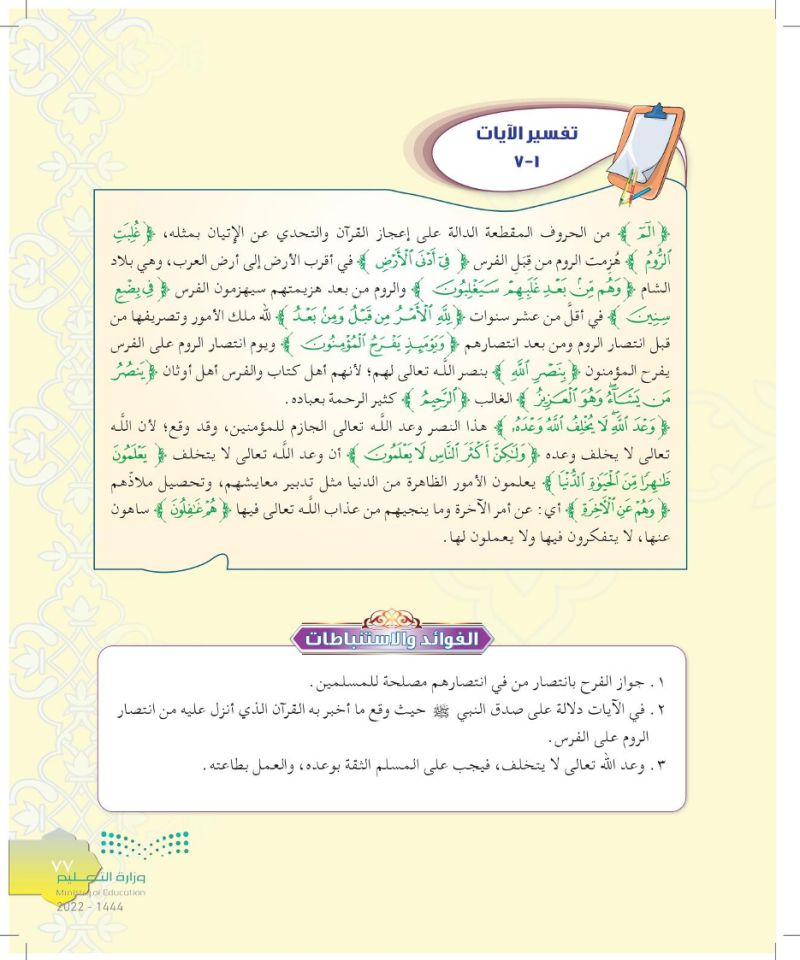 تفسير الآيات
١-٧
﴿ الٓمٓ ﴾ من الحروف المقطعة الدالة على إعجاز القرآن والتحدي عن الإتيان بمثله، ﴿ غُلِبَتِ
ٱلرُّومُ ﴾ هُزِمت الروم من قِبَلِ الفرس ﴿ فِىٓ أَدْنَى ٱلْأَرْضِ ﴾ في أقرب الأرض إلى أرض العرب، وهي بلاد
الشام ﴿ وَهُم مِّنۢ بَعْدِ غَلَبِهِمْ سَيَغْلِبُونَ ﴾ والروم من بعد هزيمتهم سيهزمون الفرس ﴿ فِى بِضْعِ
سِنِينَ ﴾ في أقلَّ من عشر سنوات ﴿ لِلَّهِ ٱلْأَمْرُ مِن قَبْلُ وَمِنۢ بَعْدُ ﴾ لله ملك الأمور وتصريفها من
قبل انتصار الروم ومن بعد انتصارهم ﴿ وَيَوْمَئِذٍ يَفْرَحُ ٱلْمُؤْمِنُونَ ﴾ ويوم انتصار الروم على الفرس
يفرح المؤمنون ﴿ بِنَصْرِ ٱللَّهِ ﴾ بنصر اللَّـه تعالى لهم؛ لأنهم أهل كتاب والفرس أهل أوثان ﴿ يَنصُرُ
مَن يَشَآءُ وَهُوَ ٱلْعَزِيزُ ﴾ الغالب ﴿ ٱلرَّحِيمُ ﴾ كثير الرحمة بعباده.
﴿ وَعْدَ ٱللَّهِ لَا يُخْلِفُ ٱللَّهُ وَعْدَهُۥ ﴾ هذا النصر وعد اللَّـه تعالى الجازم للمؤمنين، وقد وقع؛ لأن اللَّـه
تعالى لا يخلف وعده ﴿ وَلَٰكِنَّ أَكْثَرَ ٱلنَّاسِ لَا يَعْلَمُونَ ﴾ أن وعد اللَّـه تعالى لا يتخلف ﴿ يَعْلَمُونَ
ظَٰهِرًا مِّنَ ٱلْحَيَوٰةِ ٱلدُّنْيَا ﴾ يعلمون الأمور الظاهرة من الدنيا مثل تدبير معايشهم، وتحصيل ملاذّهم
﴿ وَهُمْ عَنِ ٱلْآخِرَةِ ﴾ أي: عن أمر الآخرة وما ينجيهم من عذاب اللَّـه تعالى فيها ﴿ هُمْ غَٰفِلُونَ ﴾ ساهون
عنها، لا يتفكرون فيها ولا يعملون لها.
الفوائد والاستنباطات
١. جواز الفرح بانتصار من في انتصارهم مصلحة للمسلمين.
٢. في الآيات دلالة على صدق النبي ﷺ حيث وقع ما أخبر به القرآن الذي أنزل عليه من انتصار
الروم على الفرس.
٣. وعد الله تعالى لا يتخلف، فيجب على المسلم الثقة بوعده، والعمل بطاعته.
٧٧
وزارة التعليم
Ministry of Education
2022 - 1444